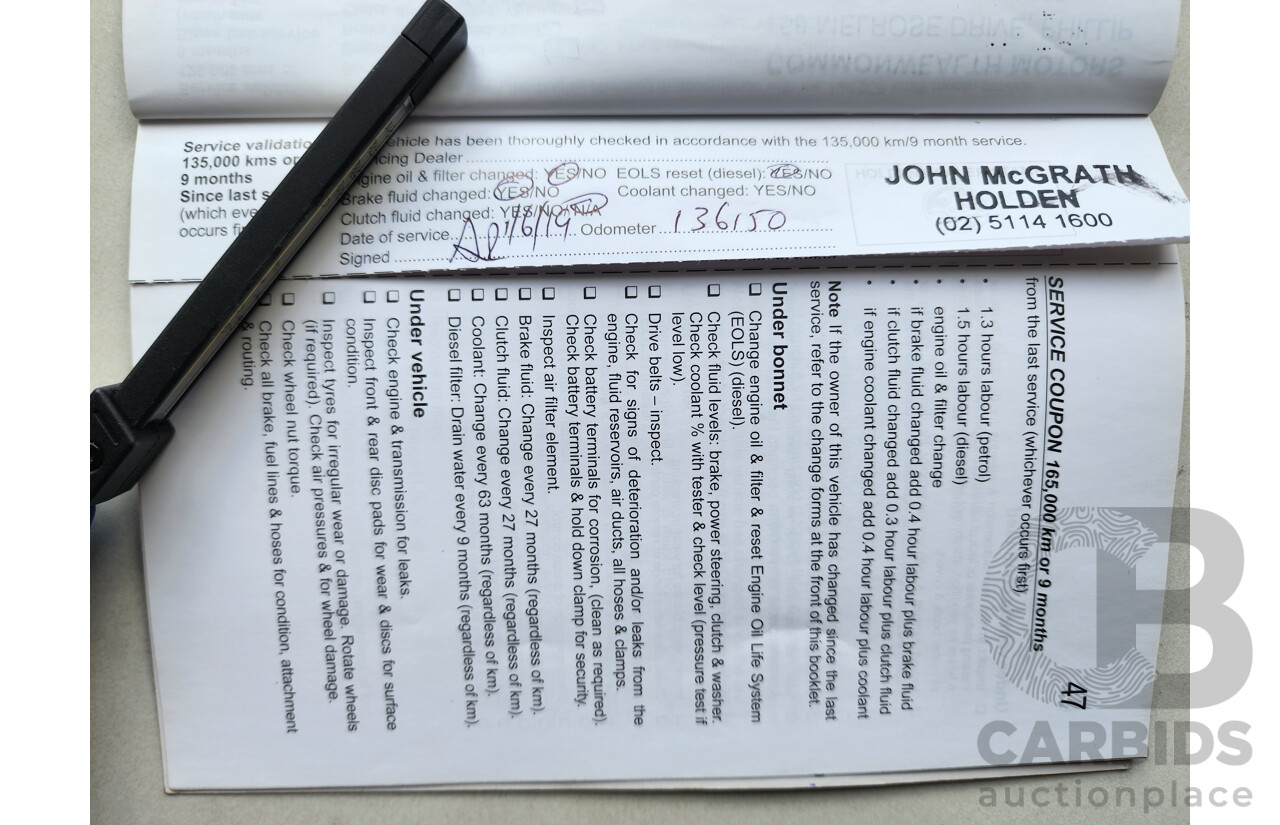 COMMONWEALTH MOTORS
MELROSE DRIVE, PHILLIP
Service validatio
135,000 kms or
9 months
Since last s
(which eve
occurs fi
ehicle has been thoroughly checked in accordance with the 135,000 km/9 month service.
icing Dealer
gine oil & filter changed: YES/NO EOLS reset (diesel): YES/NO
Brake fluid changed: YES/NO Coolant changed: YES/NO
Clutch fluid changed: YES/NO/N/A
Date of service 11/6/19 Odometer 136150
Signed
JOHN McGRATH
HOLDEN
(02) 5114 1600
47
SERVICE COUPON 165,000 km or 9 months
from the last service (whichever occurs first)
• 1.3 hours labour (petrol)
• 1.5 hours labour (diesel)
• engine oil & filter change
• if brake fluid changed add 0.4 hour labour plus brake fluid
• if clutch fluid changed add 0.3 hour labour plus clutch fluid
• if engine coolant changed add 0.4 hour labour plus coolant
Note If the owner of this vehicle has changed since the last
service, refer to the change forms at the front of this booklet.
Under bonnet
❑ Change engine oil & filter & reset Engine Oil Life System
(EOLS) (diesel).
❑ Check fluid levels: brake, power steering, clutch & washer.
Check coolant % with tester & check level (pressure test if
level low).
❑ Drive belts – inspect.
❑ Check for signs of deterioration and/or leaks from the
engine, fluid reservoirs, air ducts, all hoses & clamps.
❑ Check battery terminals for corrosion, (clean as required).
Check battery terminals & hold down clamp for security.
❑ Inspect air filter element.
❑ Brake fluid: Change every 27 months (regardless of km).
❑ Clutch fluid: Change every 27 months (regardless of km).
❑ Coolant: Change every 63 months (regardless of km).
❑ Diesel filter: Drain water every 9 months (regardless of km).
Under vehicle
❑ Check engine & transmission for leaks.
❑ Inspect front & rear disc pads for wear & discs for surface
condition.
❑ Inspect tyres for irregular wear or damage. Rotate wheels
(if required). Check air pressures & for wheel damage.
❑ Check wheel nut torque.
❑ Check all brake, fuel lines & hoses for condition, attachment
& routing.
CARBIDS
auctionplace